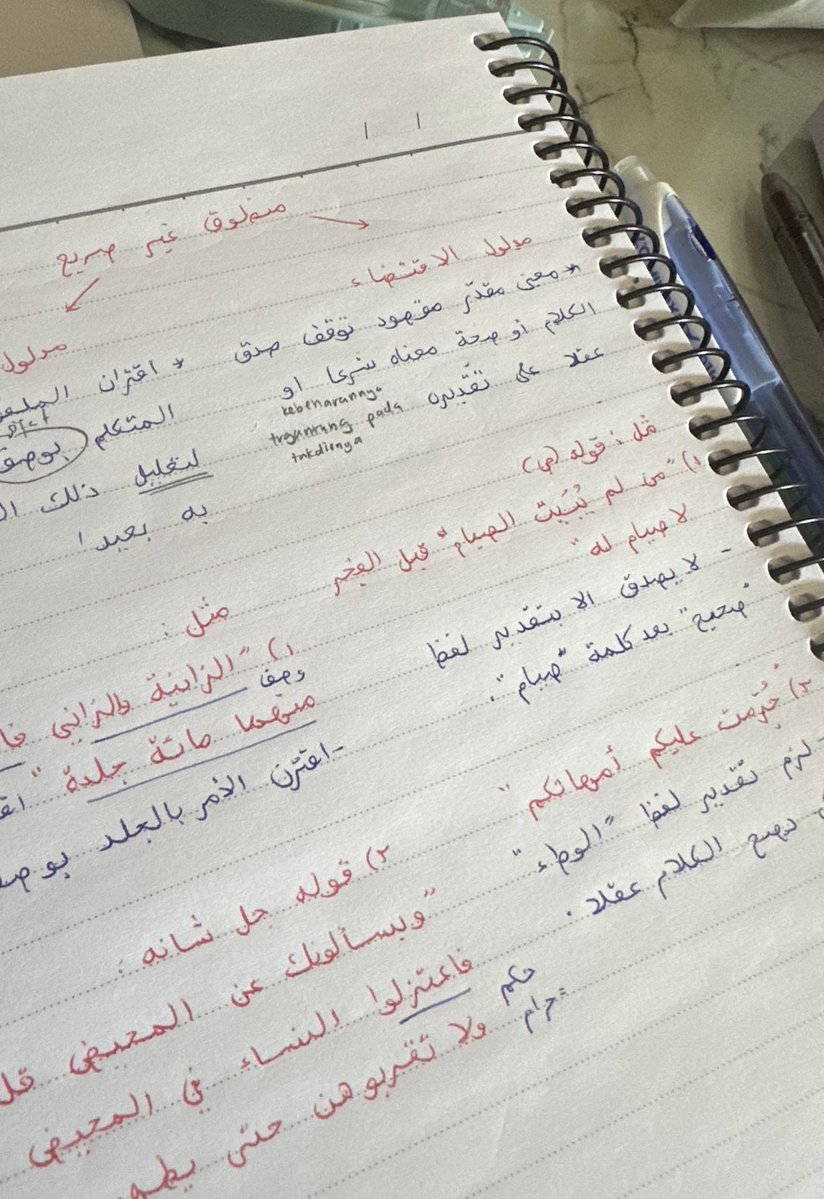 منطوق غير صريح
مدلول الاقتضاء
* معنى مقدّر مقصود توقف صدق
الكلام أو صحة معناه شرعا او
عقلا على تقديره
kebenarannya
trgantung pada
takdirnya
مثل : قوله (ص)
١) "من لم يُبَيِّت الصيام قبل الفجر
لا صيام له"
- لا يصدق الا بتقدير لفظ
"صحيح" بعد كلمة "صيام".
٢) حُرِّمت عليكم أمهاتكم"
لزم تقدير لفظ "الوطء"
يصح الكلام عقلا .
مدلول
* اقتران
المتكلم بوصف
لتعليل ذلك
به بعيد !
مثل :
١) "الزانية والزاني
وصف
منهما مائة جلدة"
- اقترن الأمر بالجلد
٢) قوله جل شانه :
"ويسألونك عن المحيض قل
فاعتزلوا النساء في المحيض
حكم
حرام
ولا تقربوهن حتى